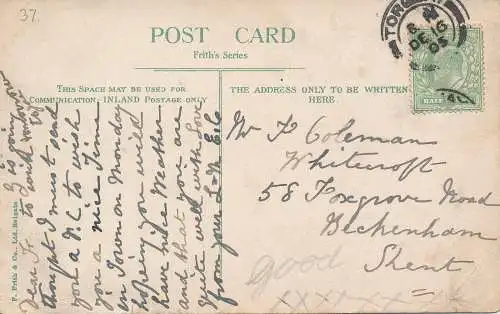 37.
POST CARD
Frith's Series
THIS SPACE MAY BE USED FOR
COMMUNICATION, INLAND POSTAGE ONLY
THE ADDRESS ONLY TO BE WRITTEN
HERE.
TORQUAY
DE 16
05
HALF
Mr F Coleman
Whitecroft
58 Foxgrove Road
Beckenham
Kent
good
xxxx xx xx
Dear
thought I must send
you a P.C to wish
you a nice Time
in Town on Monday
hoping you will
have nice Weather
and that you are
Quite well with Love
from your
F. Frith & Co., Ltd. Reigate